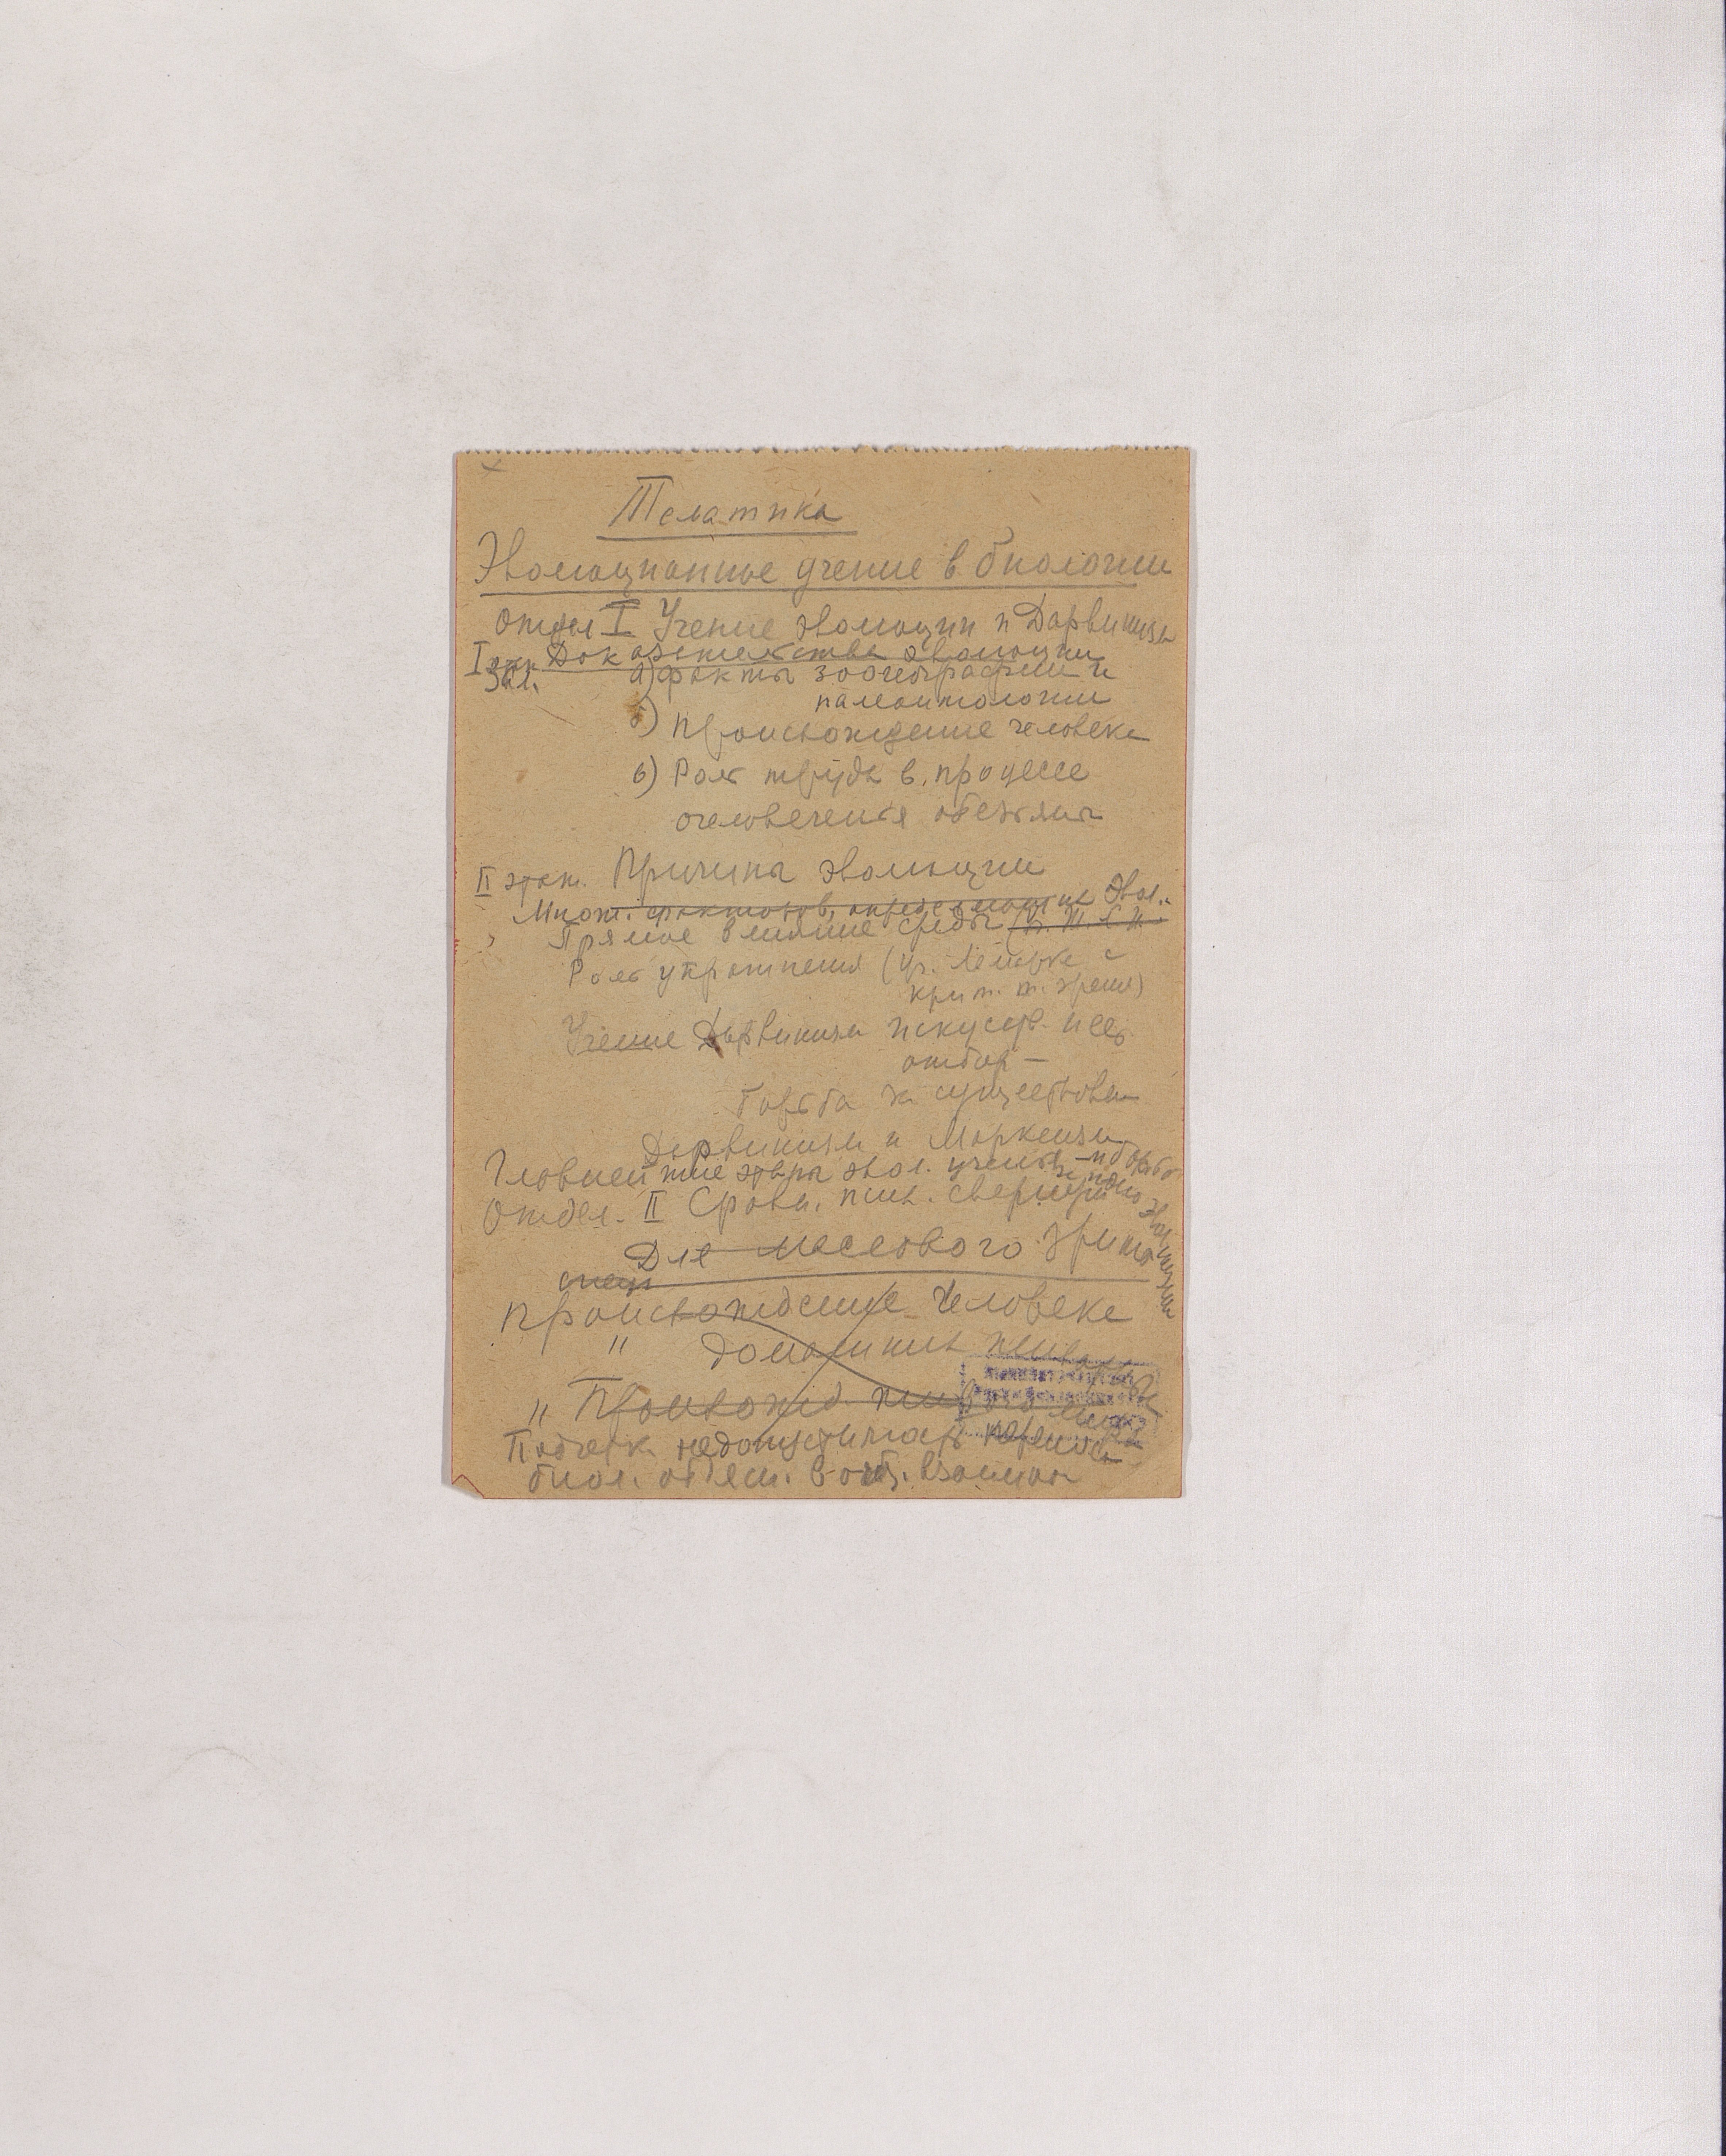 Тематика
Эволюционное учение в биологии
Отдел I Учение эволюции и Дарвинизм
I этаж Доказательства эволюции
Зал. а) факты зоогеографии и
палеонтологии
б) Происхождение человека
в) Роль труда в процессе
очеловечения обезьяны
II этаж. Причины эволюции
Множ. факторов, определяющие эвол.
Прямое влияние среды
Роль упражнения (уч. Ламарка с
крит. т. зрения)
Учение Дарвинизм искусств. и ес.
отбор —
борьба за существован
Дарвинизм и Марксизм
Главнейшие этапы эвол. учения и борьба
Отдел. II Сравн. псих.
Для массового зрит.
Происхождение человека
" домашних
" Происхожд.
Подчерк. недопустимость переноса
биол. в общ.